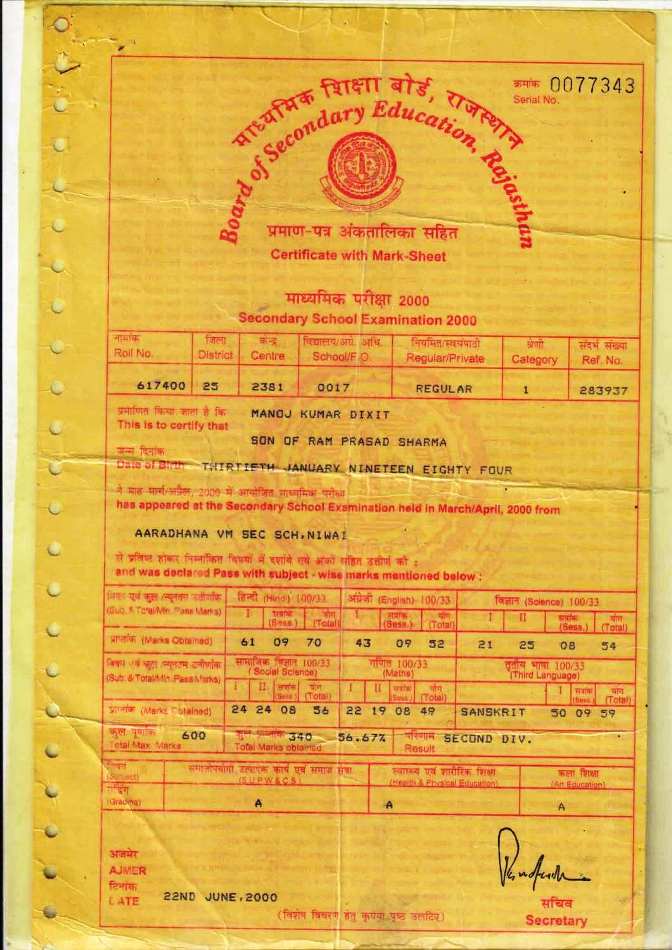 क्रमांक 0077343
Serial No.
माध्यमिक शिक्षा बोर्ड, राजस्थान
Board of Secondary Education, Rajasthan
प्रमाण-पत्र अंकतालिका सहित
Certificate with Mark-Sheet
माध्यमिक परीक्षा 2000
Secondary School Examination 2000
नामांक जिला केन्द्र विद्यालय/अग्रे. अधि. नियमित/स्वयंपाठी श्रेणी संदर्भ संख्या
Roll No. District Centre School/F.O. Regular/Private Category Ref. No.
617400 25 2381 0017 REGULAR 1 283937
प्रमाणित किया जाता है कि MANOJ KUMAR DIXIT
This is to certify that
SON OF RAM PRASAD SHARMA
जन्म दिनांक
Date of Birth THIRTIETH JANUARY NINETEEN EIGHTY FOUR
ने माह मार्च/अप्रैल, 2000 में आयोजित माध्यमिक परीक्षा
has appeared at the Secondary School Examination held in March/April, 2000 from
AARADHANA VM SEC SCH,NIWAI
से प्रविष्ट होकर निम्नांकित विषयों में दर्शाये गये अंकों सहित उत्तीर्ण की :
and was declared Pass with subject - wise marks mentioned below :
विषय एवं कुल /न्यूनतम उत्तीर्णांक हिन्दी (Hindi) 100/33 अंग्रेजी (English) 100/33 विज्ञान (Science) 100/33
(Sub. & Total/Min. Pass Marks) I सत्रांक (Sess.) योग (Total) I सत्रांक (Sess.) योग (Total) I II सत्रांक (Sess.) योग (Total)
प्राप्तांक (Marks Obtained) 61 09 70 43 09 52 21 25 08 54
विषय एवं कुल /न्यूनतम उत्तीर्णांक सामाजिक विज्ञान 100/33 गणित 100/33 तृतीय भाषा 100/33
(Sub. & Total/Min. Pass Marks) (Social Science) (Maths) (Third Language)
I II सत्रांक (Sess.) योग (Total) I II सत्रांक (Sess.) योग (Total) I सत्रांक (Sess.) योग (Total)
प्राप्तांक (Marks Obtained) 24 24 08 56 22 19 08 49 SANSKRIT 50 09 59
कुल पूर्णांक 600 कुल प्राप्तांक 340 56.67% परिणाम SECOND DIV.
Total Max. Marks Total Marks obtained Result
विषय समाजोपयोगी उत्पादक कार्य एवं समाज सेवा स्वास्थ्य एवं शारीरिक शिक्षा कला शिक्षा
(Subject) (S.U.P.W.& C.S.) (Health & Physical Education) (Art Education)
(Grading) A A A
अजमेर
AJMER
दिनांक
DATE 22ND JUNE,2000
(विशेष विवरण हेतु कृपया पृष्ठ उलटिए)
सचिव
Secretary